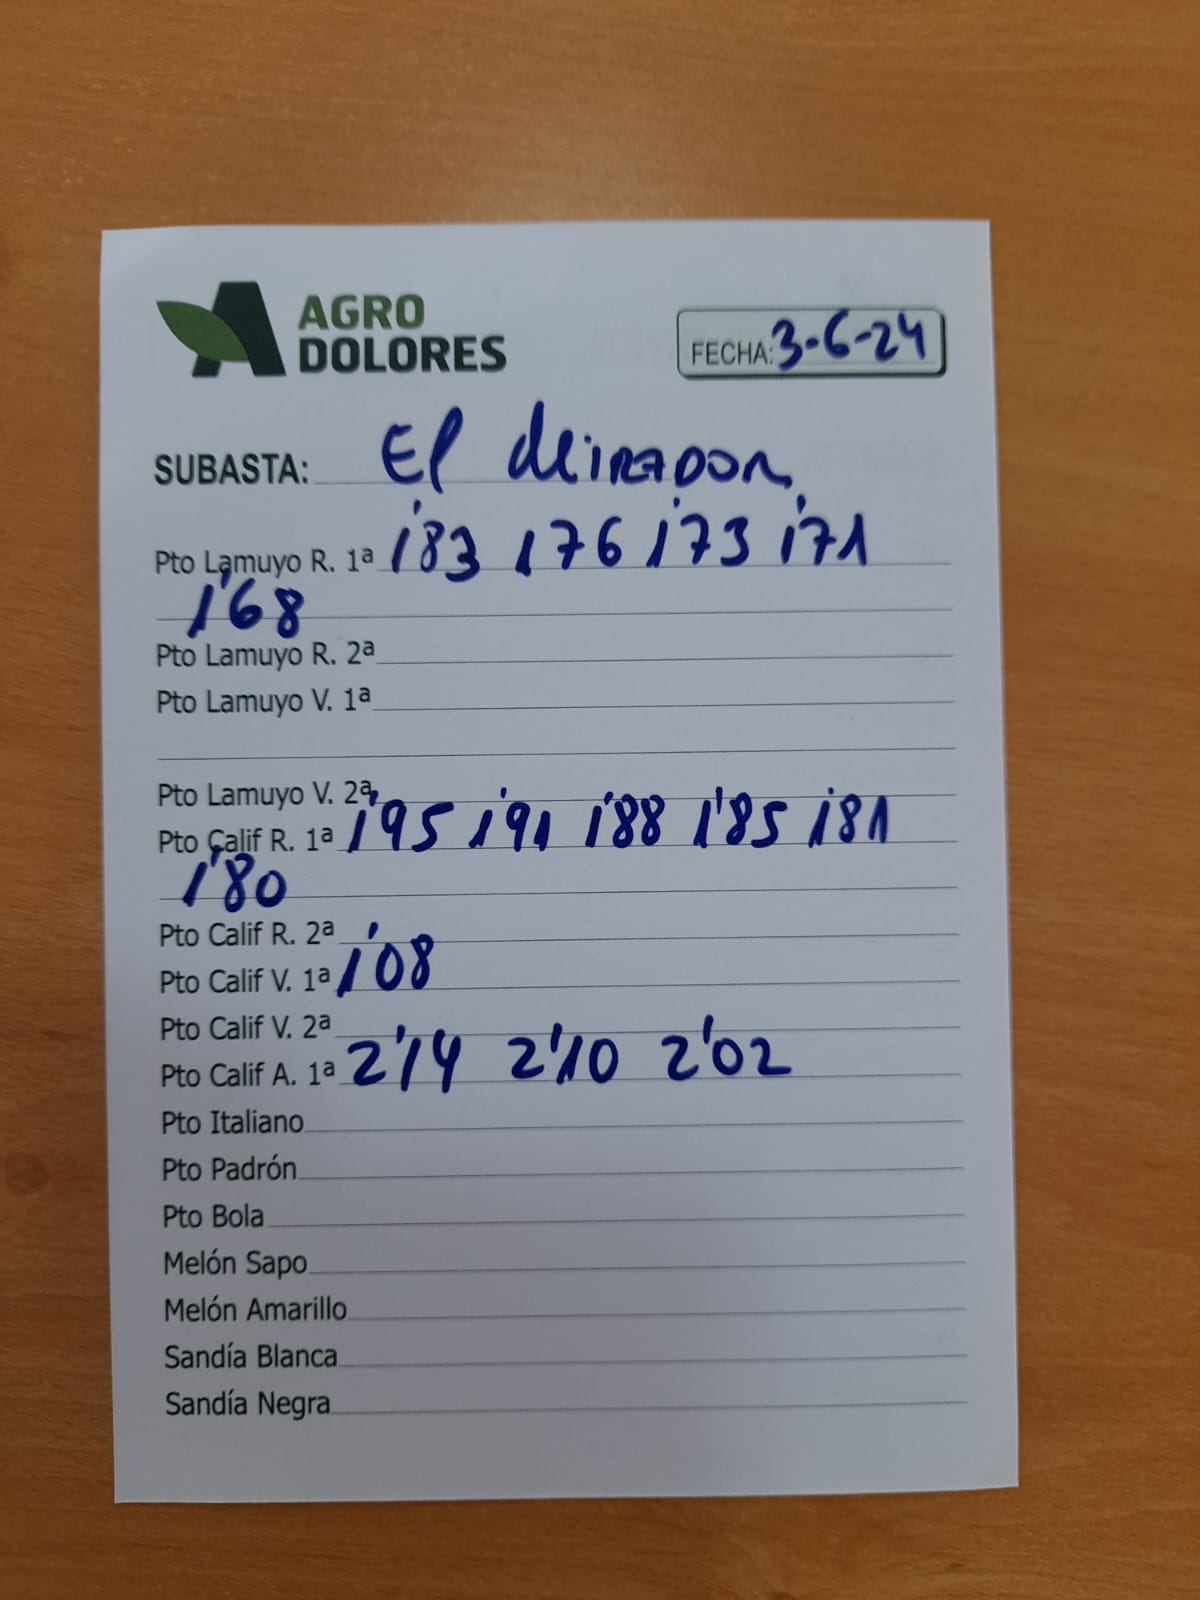 AGRO
DOLORES
FECHA: 3-6-24
SUBASTA: El Mirador
Pto Lamuyo R. 1ª 1'83 176 1'73 1'71
1'68
Pto Lamuyo R. 2ª
Pto Lamuyo V. 1ª
Pto Lamuyo V. 2ª
Pto Calif R. 1ª 1'95 1'91 1'88 1'85 1'81
1'80
Pto Calif R. 2ª
Pto Calif V. 1ª 1'08
Pto Calif V. 2ª
Pto Calif A. 1ª 2'14 2'10 2'02
Pto Italiano
Pto Padrón
Pto Bola
Melón Sapo
Melón Amarillo
Sandía Blanca
Sandía Negra